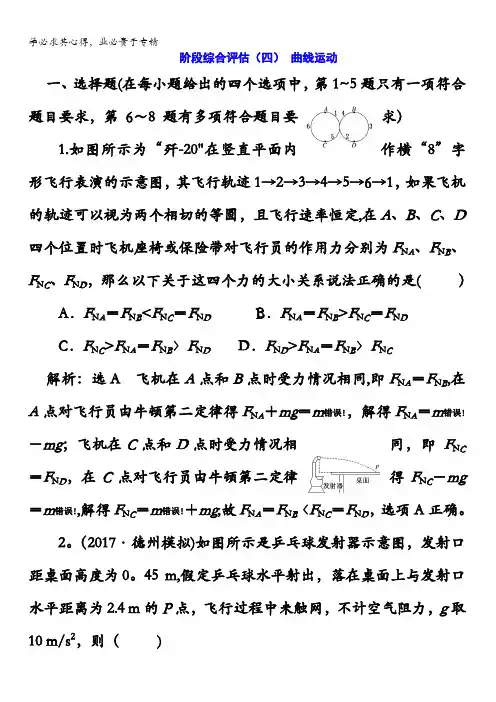 学必求其心得，业必贵于专精
阶段综合评估（四） 曲线运动
一、选择题(在每小题给出的四个选项中，第1~5题只有一项符合
题目要求，第 6～8 题有多项符合题目要求)
A 1 4 B
6 3
5 2
C D
1.如图所示为“歼-20"在竖直平面内作横“8”字
形飞行表演的示意图，其飞行轨迹1→2→3→4→5→6→1，如果飞机
的轨迹可以视为两个相切的等圆，且飞行速率恒定,在A、B、C、D
四个位置时飞机座椅或保险带对飞行员的作用力分别为FNA、FNB、
FNC、FND，那么以下关于这四个力的大小关系说法正确的是( )
A．FNA＝FNB<FNC＝FND B．FNA＝FNB>FNC＝FND
C．FNC>FNA＝FNB〉FND D．FND>FNA＝FNB〉FNC
解析：选A 飞机在A点和B点时受力情况相同,即FNA＝FNB,在
A点对飞行员由牛顿第二定律得FNA＋mg＝m错误!，解得FNA＝m错误!
－mg；飞机在C点和D点时受力情况相同，即FNC
＝FND，在C点对飞行员由牛顿第二定律得FNC－mg
发射器 桌面 P
＝m错误!,解得FNC＝m错误!＋mg,故FNA＝FNB〈FNC＝FND，选项A正确。
2。(2017·德州模拟)如图所示是乒乓球发射器示意图，发射口
距桌面高度为0。45 m,假定乒乓球水平射出，落在桌面上与发射口
水平距离为2.4 m的P点，飞行过程中未触网，不计空气阻力，g取
10 m/s²，则（ ）